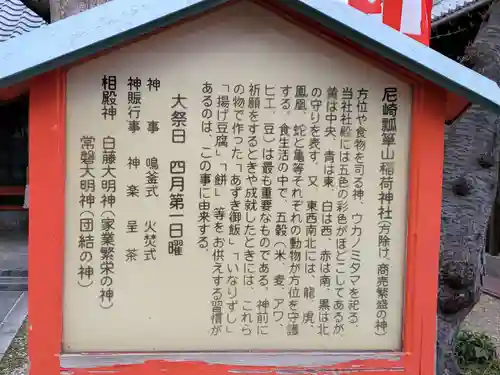 尼崎瓢箪山稲荷神社(方除け、商売繁盛の神)
方位や食物を司る神、ウカノミタマを祀る、
当社社殿には五色の彩色がほどこしてあるが
黄は中央、青は東、白は西、赤は南、黒は北
の守りを表す。又、東西南北には、龍、虎、
鳳凰、蛇と亀等それぞれの動物が方位を守護
する。食生活の中で、五穀(米、麦、アワ、
ヒエ、豆)は最も重要なものである。神前に
祈願をするときや成就したときには、これら
の物で作った「あずき御飯」「いなりずし」
「揚げ豆腐」「餅」等をお供えする習慣が
あるのは、この事に由来する。
大祭日 四月第一日曜
神事 鳴釜式 火焚式
神賑行事 神楽 呈茶
相殿神 白藤大明神(家業繁栄の神)
常磐大明神(団結の神)